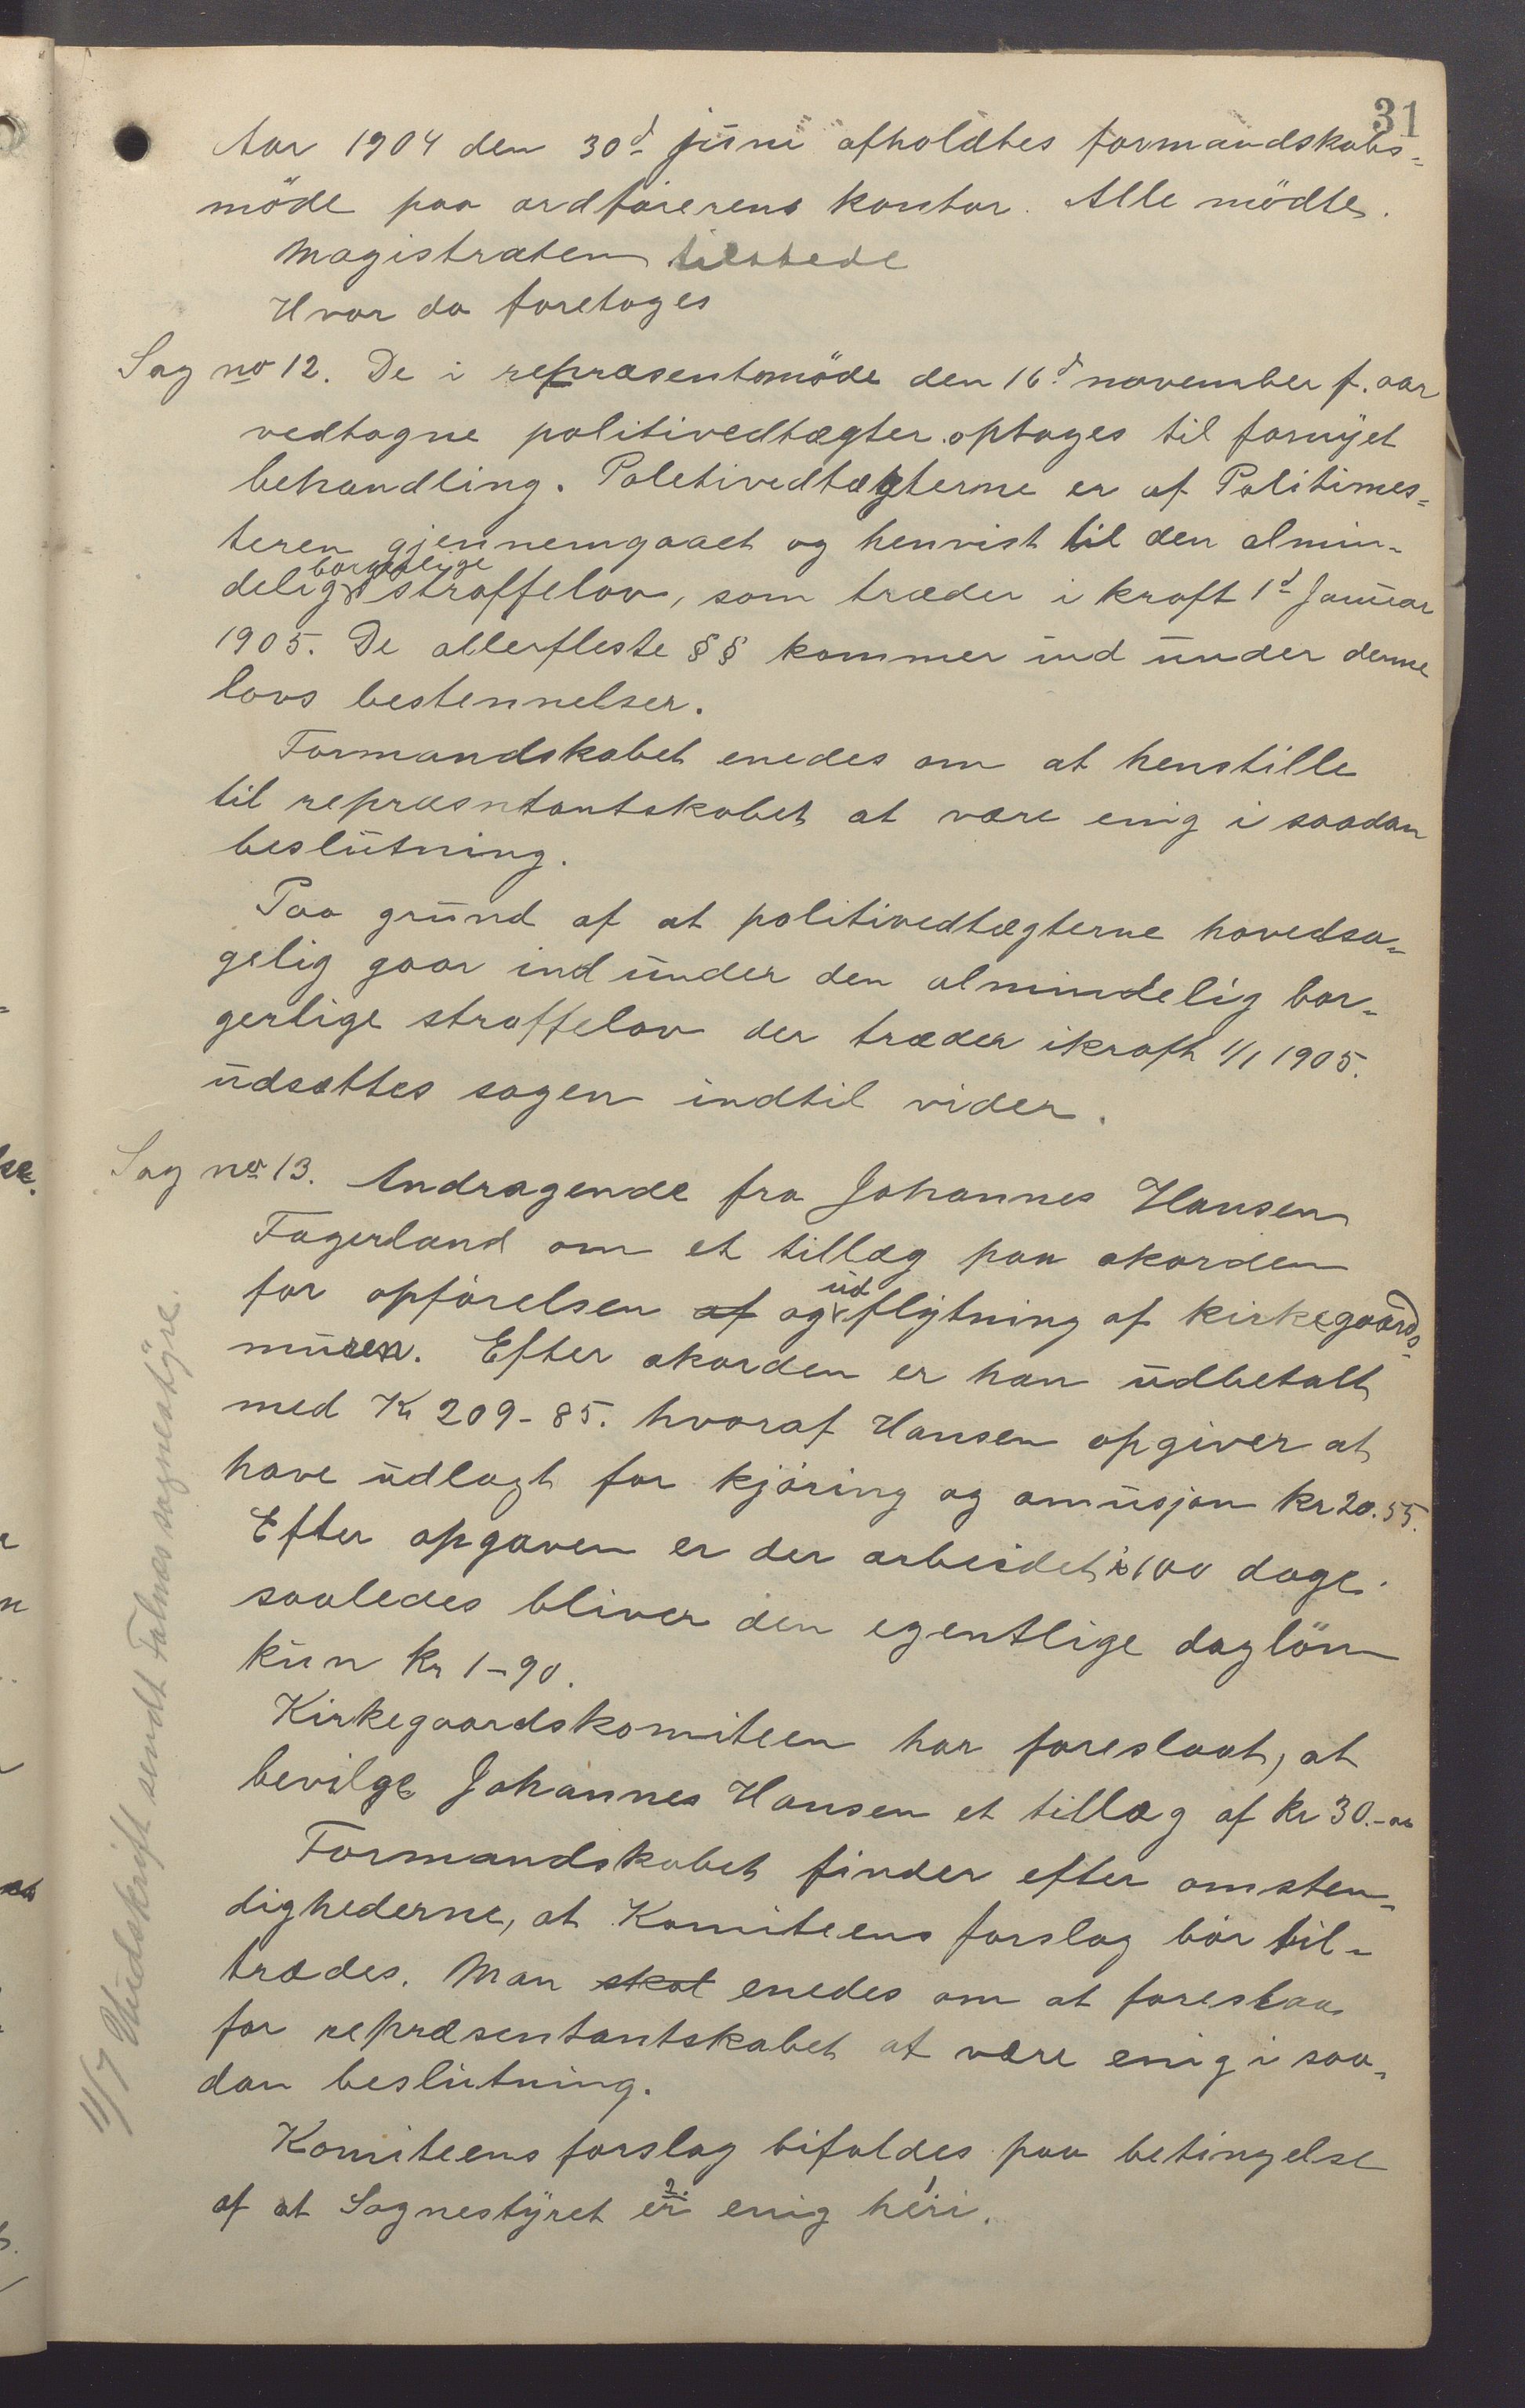 31
Aar 1904 den 30d juni afholdtes formandskabs-
møde paa ordførerens kontor. Alle mødte.
Magistraten tilstede
Hvor da foretoges
Sag no 12. De i repræsentsmøde den 16d november f. aar
vedtagne politivedtægter optages til fornyet
behandling. Poletivedtægterne er af Politimes-
teren gjennemgaaet og henvist til den almin-
borgerlige
delig straffelov, som træder i kraft 1d Januar
1905. De allerfleste §§ kommer ind under denne
lovs bestennelser.
Formandskabet enedes om at henstille
til repræsntantskabet at være enig i saadan
beslutning.
Paa grund af at politivedtægterne hovedsa-
gelig gaar ind under den almindelig bor-
gerlige straffelov der træder ikraft 1/1 1905.
udsættes sagen indtil vider.
Sag no 13. Andragende fra Johannes Hansen
Fagerland om et tillæg paa akorden
ud
for opførelsen af og flytning af kirkegaards-
muren. Efter akorden er han udbetalt
med Kr 209-85. hvoraf Hansen opgiver at
have udlagt for kjøring og amusjon kr 20.55.
Efter opgaven er der arbeidet i 100 dage.
saaledes bliver den egentlige dagløn
kun kr 1-90.
Kirkegaardskomiteen har foreslaat, at
bevilge Johannes Hansen et tillæg af kr 30.-oo
Formandskabet finder efter omsten-
dighederne, at Komiteens forslag bør til-
trædes. Man skal enedes om at foreslaa
for repræsentantskabet at være enig i saa-
dan beslutning.
Komiteens forslag bifaldes paa betingelse
af at Sognestyret er enig heri.
2. 1
11/7 Uudskrift sendt Falnes sognestyre.